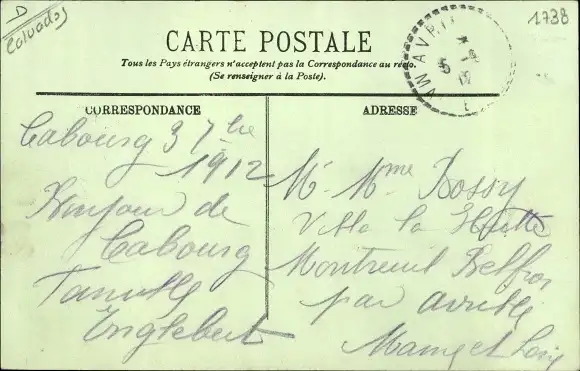 D
Calvados
1738
CARTE POSTALE
Tous les Pays étrangers n'acceptent pas la Correspondance au recto.
(Se renseigner à la Poste).
AVRIL
5
12
MA
E
CORRESPONDANCE
Cabourg 3 7bre
1912
Bonjour de
Cabourg
Famille
Englebert
ADRESSE
Mr Mme Bossy
Villa la Hutte
Montreuil Belfroi
par avrillé
Maine et Loire